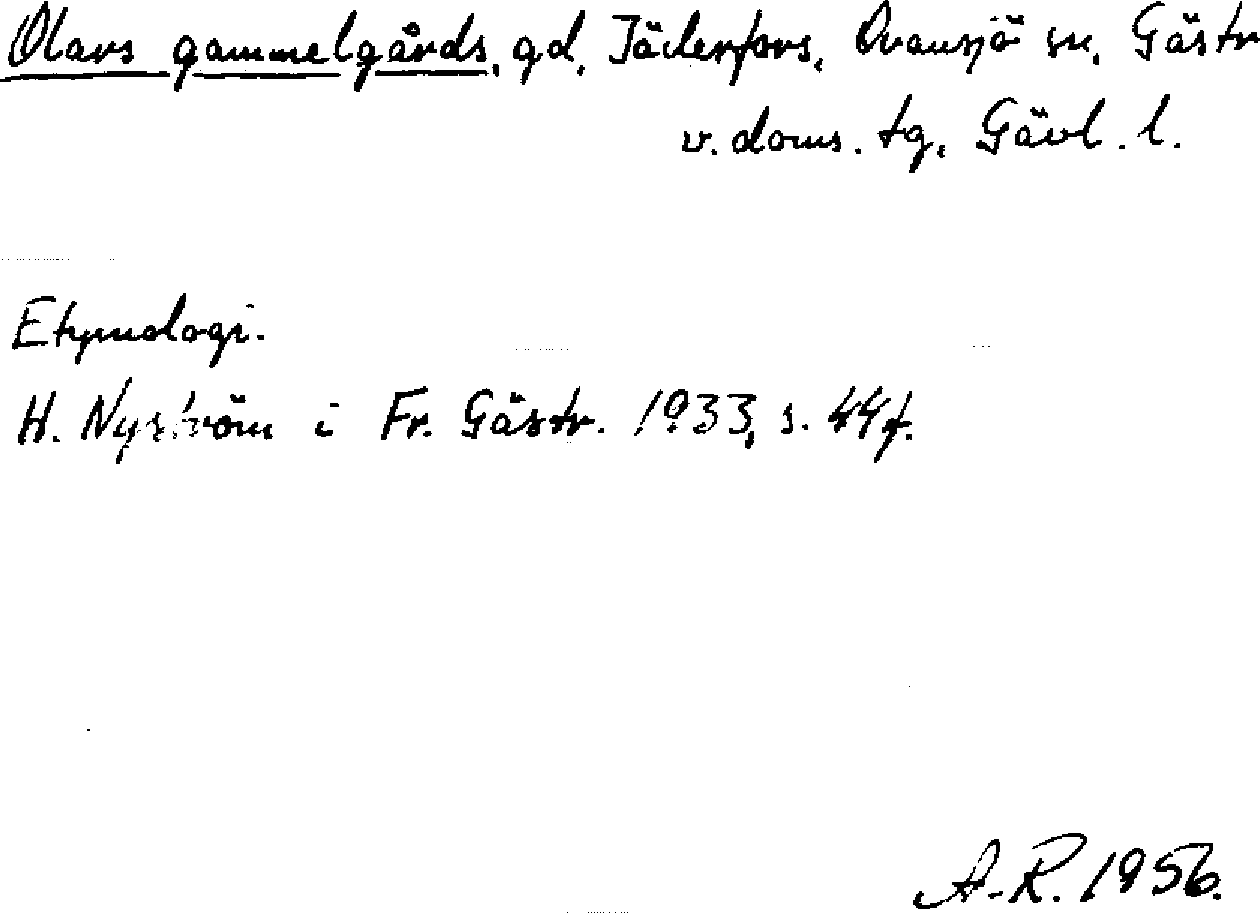 Olars gammelgårds, gd, Jäderfors, Ovansjö sn, Gästr
v. doms. tg, Gävl. l.
Etymologi.
H. Nyström i Fr. Gästr. 1933, s. 44f.
A.-R. 1956.